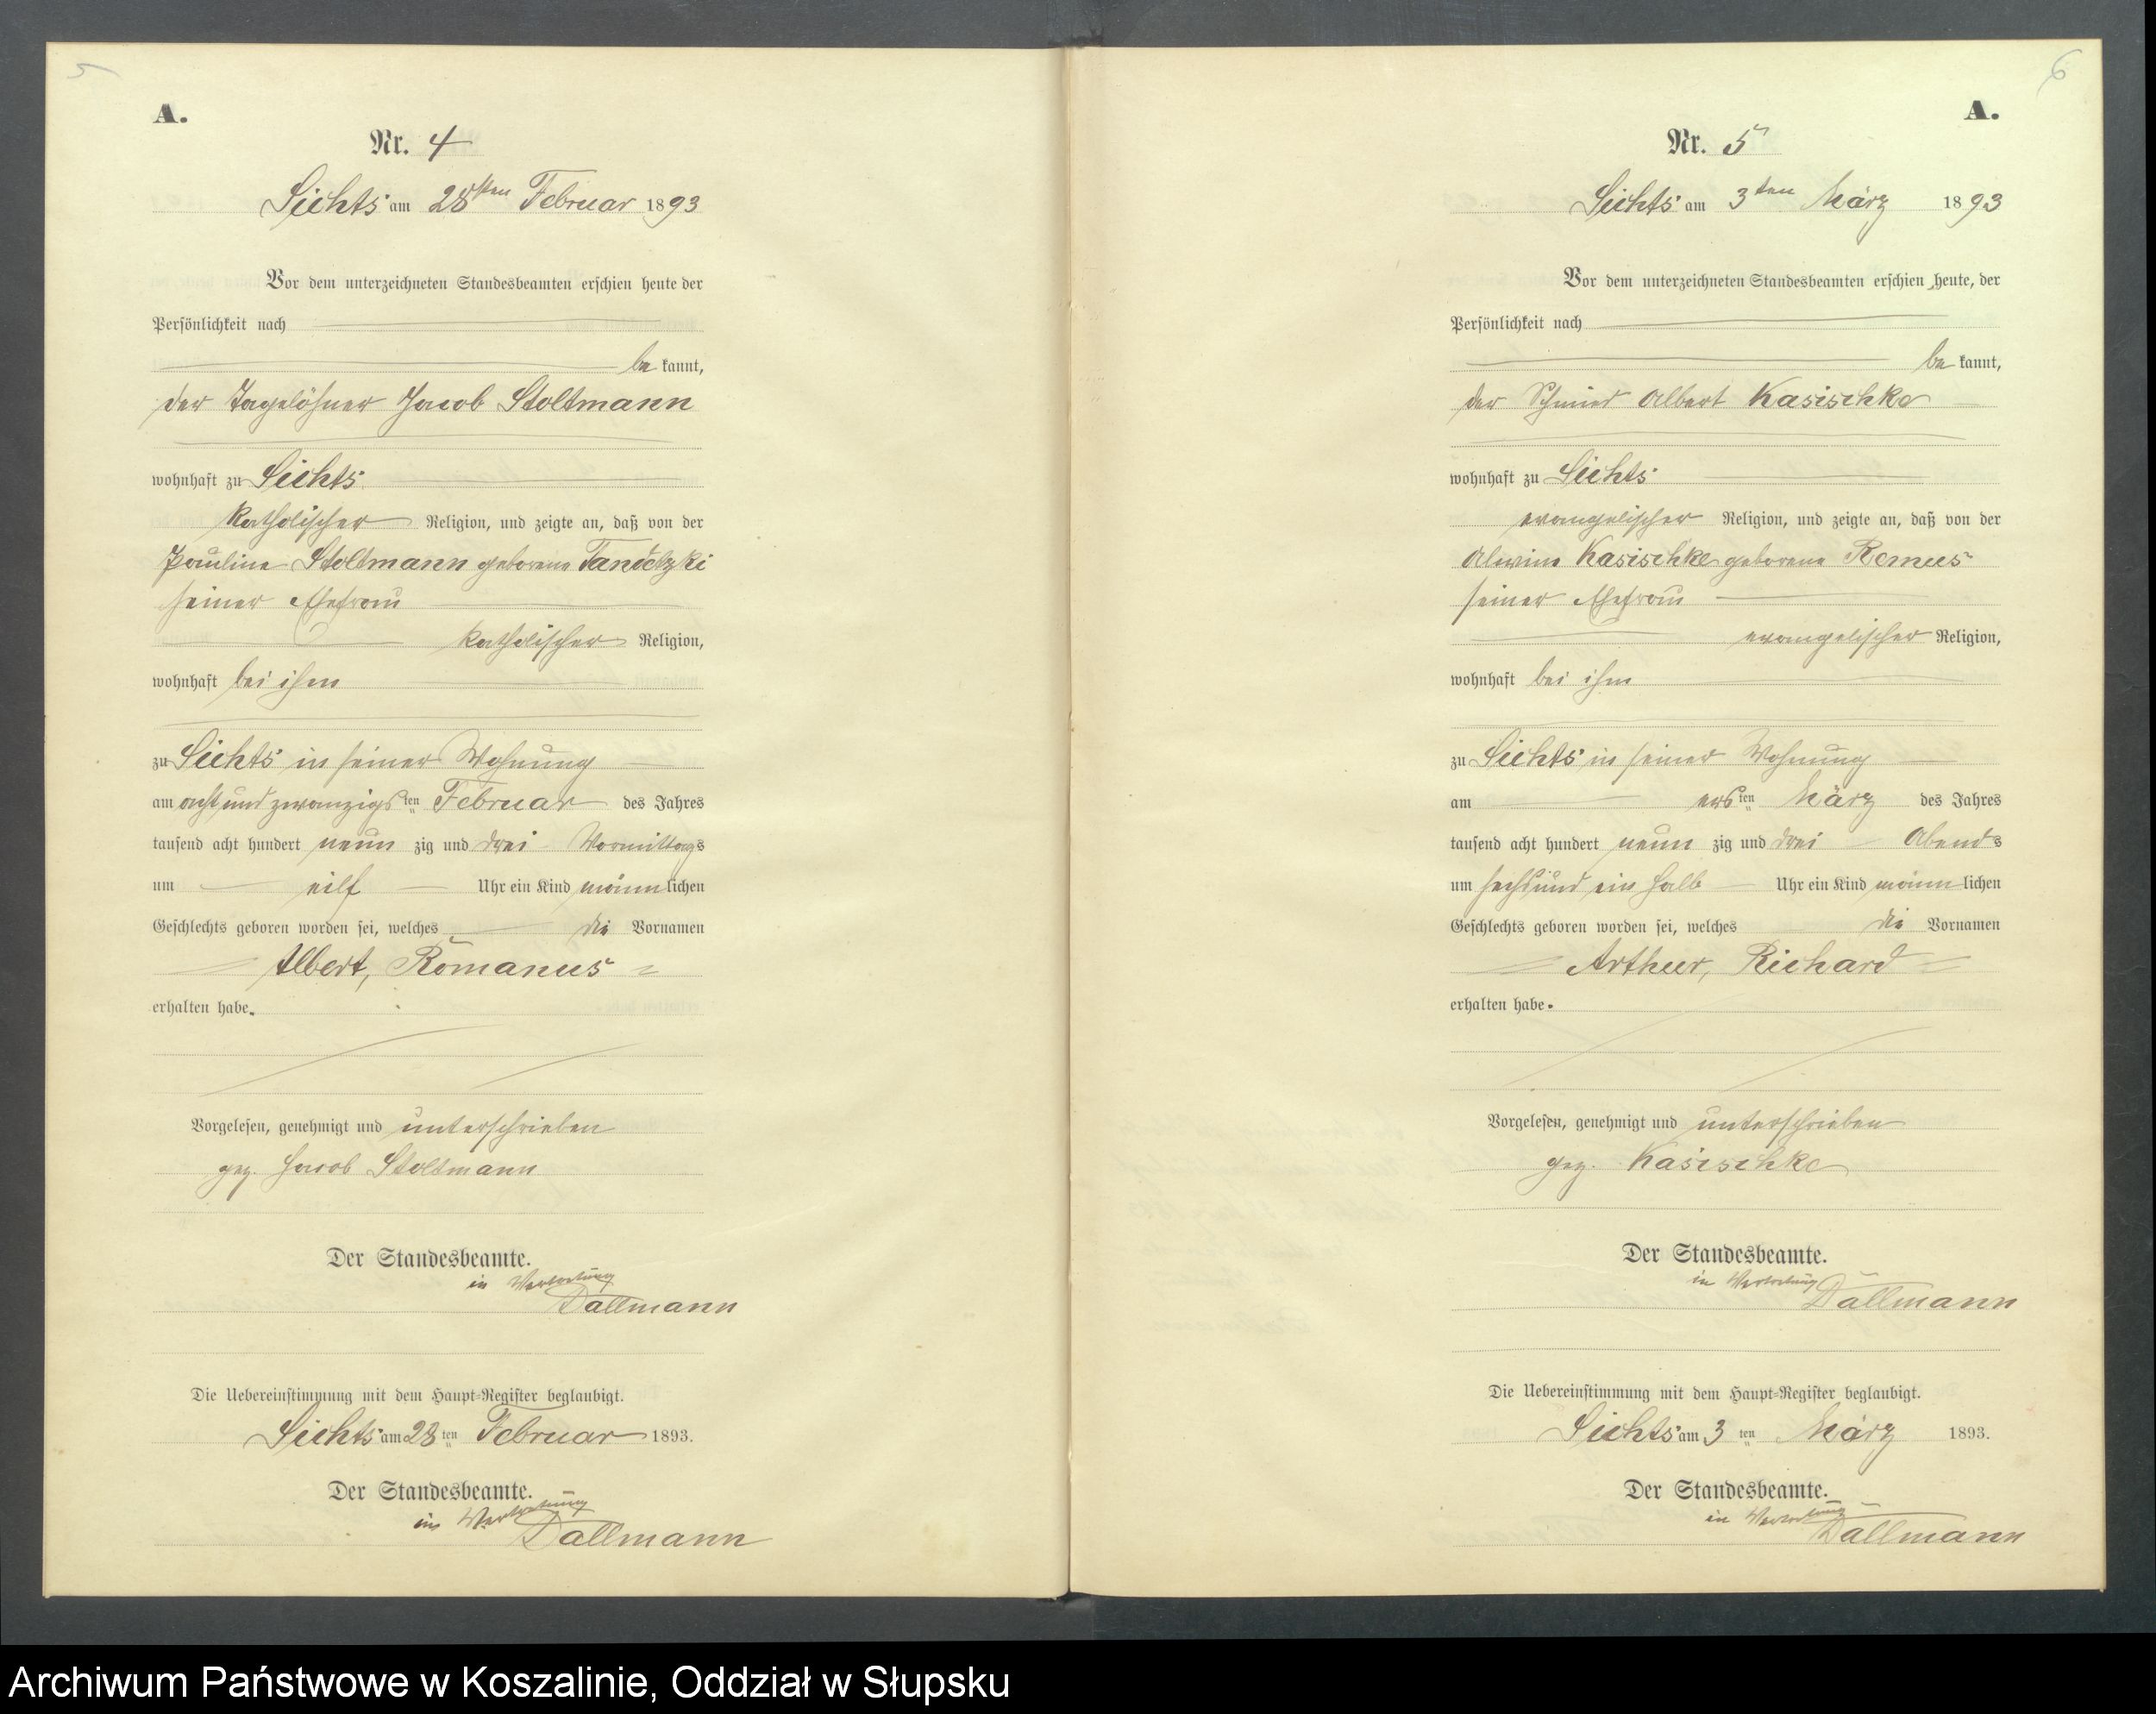 5
A.
Nr. 4
Sichts am 28sten Februar 1893
Vor dem unterzeichneten Standesbeamten erschien heute der
Persönlichkeit nach
be kannt,
der Tagelöhner Jacob Stoltmann
wohnhaft zu Sichts
katholischer Religion, und zeigte an, daß von der
Pauline Stoltmann geborene
seiner Ehefrau
katholischer Religion,
wohnhaft bei ihm
zu Sichts in seiner Wohnung
am acht und zwanzigsten Februar des Jahres
tausend acht hundert neun zig und drei Vormittags
um eilf Uhr ein Kind männ lichen
Geschlechts geboren worden sei, welches die Vornamen
Albert, Romanus
erhalten habe.
Vorgelesen, genehmigt und unterschrieben
gez. Jacob Stoltmann
Der Standesbeamte.
in Vertretung
Dallmann
Die Uebereinstimmung mit dem Haupt-Register beglaubigt.
Sichts am 28 ten Februar 1893.
Der Standesbeamte.
in Vertretung
Dallmann
6
A.
Nr. 5
Sichts am 3ten März 1893
Vor dem unterzeichneten Standesbeamten erschien heute, der
Persönlichkeit nach
be kannt,
der Schmied Albert Kasischke
wohnhaft zu Sichts
evangelischer Religion, und zeigte an, daß von der
Alwine Kasischke geborene Remus
seiner Ehefrau
evangelischer Religion,
wohnhaft bei ihm
zu Sichts in seiner Wohnung
am ersten März des Jahres
tausend acht hundert neun zig und drei Abends
um sechs und ein halb Uhr ein Kind männ lichen
Geschlechts geboren worden sei, welches die Vornamen
Arthur, Richard
erhalten habe.
Vorgelesen, genehmigt und unterschrieben
gez. Kasischke
Der Standesbeamte.
in Vertretung
Dallmann
Die Uebereinstimmung mit dem Haupt-Register beglaubigt.
Sichts am 3 ten März 1893.
Der Standesbeamte.
in Vertretung
Dallmann
Archiwum Państwowe w Koszalinie, Oddział w Słupsku